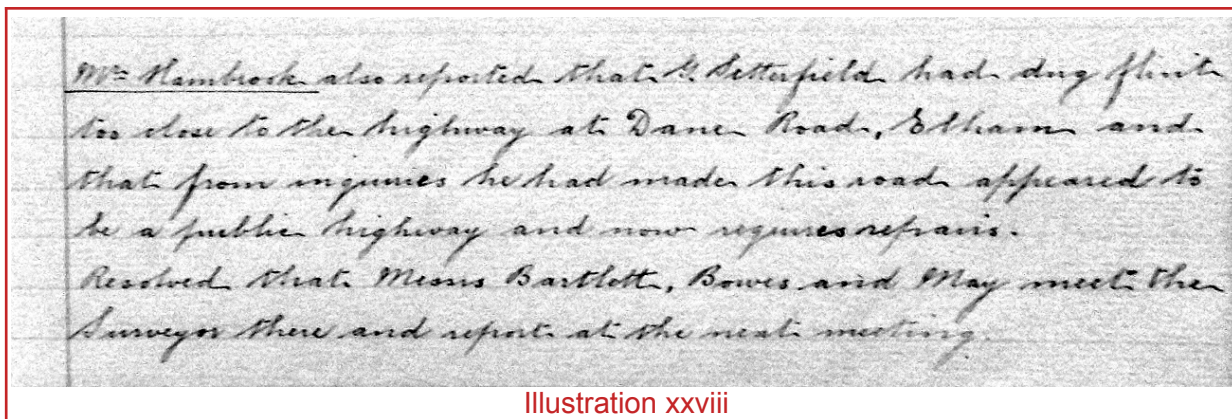 Mr Hambrook also reported that G. Setterfield had dug flint
too close to the highway at Dane Road, Elham and
that from inquiries he had made this road appeared to
be a public highway and now requires repairs.
Resolved that Messrs Bartlett, Bowes and May meet the
Surveyor there and report at the next meeting.
Illustration xxviii